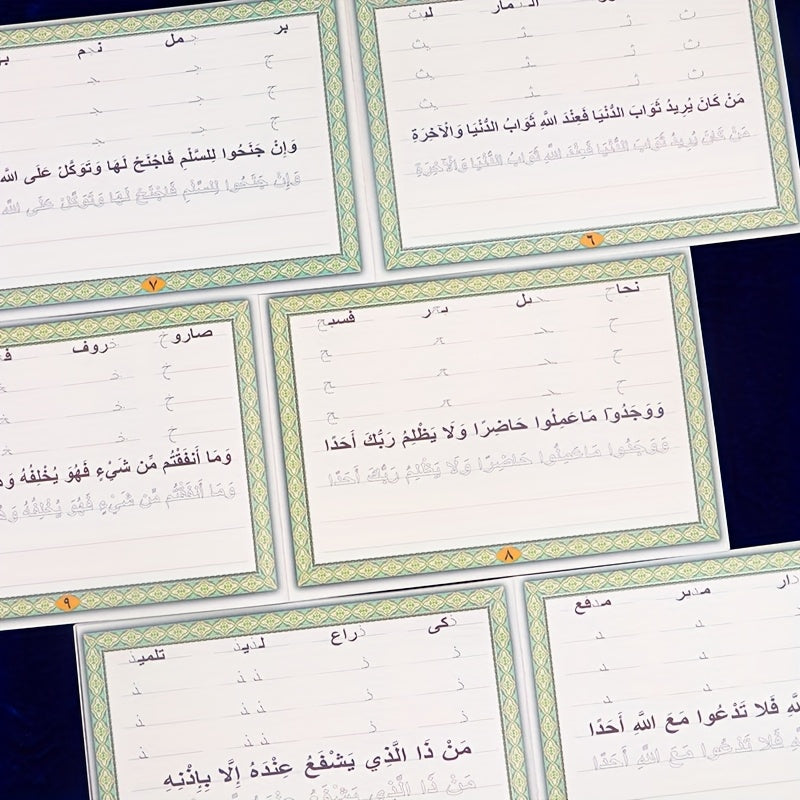 ث ث ث ث
ث ث ث ث
ث ث ث ث
مَنْ كَانَ يُرِيدُ ثَوَابَ الدُّنْيَا فَعِنْدَ اللَّهِ ثَوَابُ الدُّنْيَا وَالْآخِرَةِ
مَنْ كَانَ يُرِيدُ ثَوَابَ الدُّنْيَا فَعِنْدَ اللَّهِ ثَوَابُ الدُّنْيَا وَالْآخِرَةِ
٦
بر جمل نجم
ج ج ج
ج ج ج
ج ج ج
وَإِنْ جَنَحُوا لِلسَّلْمِ فَاجْنَحْ لَهَا وَتَوَكَّلْ عَلَى اللَّه
وَإِنْ جَنَحُوا لِلسَّلْمِ فَاجْنَحْ لَهَا وَتَوَكَّلْ عَلَى اللَّه
٧
نجاح حبل بحر فسبح
ح ح ح ح
ح ح ح ح
ح ح ح ح
وَوَجَدُوا مَاعَمِلُوا حَاضِرًا وَلَا يَظْلِمُ رَبُّكَ أَحَدًا
وَوَجَدُوا مَاعَمِلُوا حَاضِرًا وَلَا يَظْلِمُ رَبُّكَ أَحَدًا
٨
صاروخ خروف
خ خ
خ خ
خ خ
وَمَا أَنفَقْتُم مِّن شَيْءٍ فَهُوَ يُخْلِفُهُ
وَمَا أَنفَقْتُم مِّن شَيْءٍ فَهُوَ يُخْلِفُهُ
٩
دار مدبر مدفع
د د
د د
د د
فَلَا تَدْعُوا مَعَ اللَّهِ أَحَدًا
فَلَا تَدْعُوا مَعَ اللَّهِ أَحَدًا
ذكى ذراع لذيذ تلميذ
ذ ذ ذ ذ ذ
ذ ذ ذ ذ ذ
ذ ذ ذ ذ ذ
مَنْ ذَا الَّذِي يَشْفَعُ عِنْدَهُ إِلَّا بِإِذْنِهِ
مَنْ ذَا الَّذِي يَشْفَعُ عِنْدَهُ إِلَّا بِإِذْنِهِ